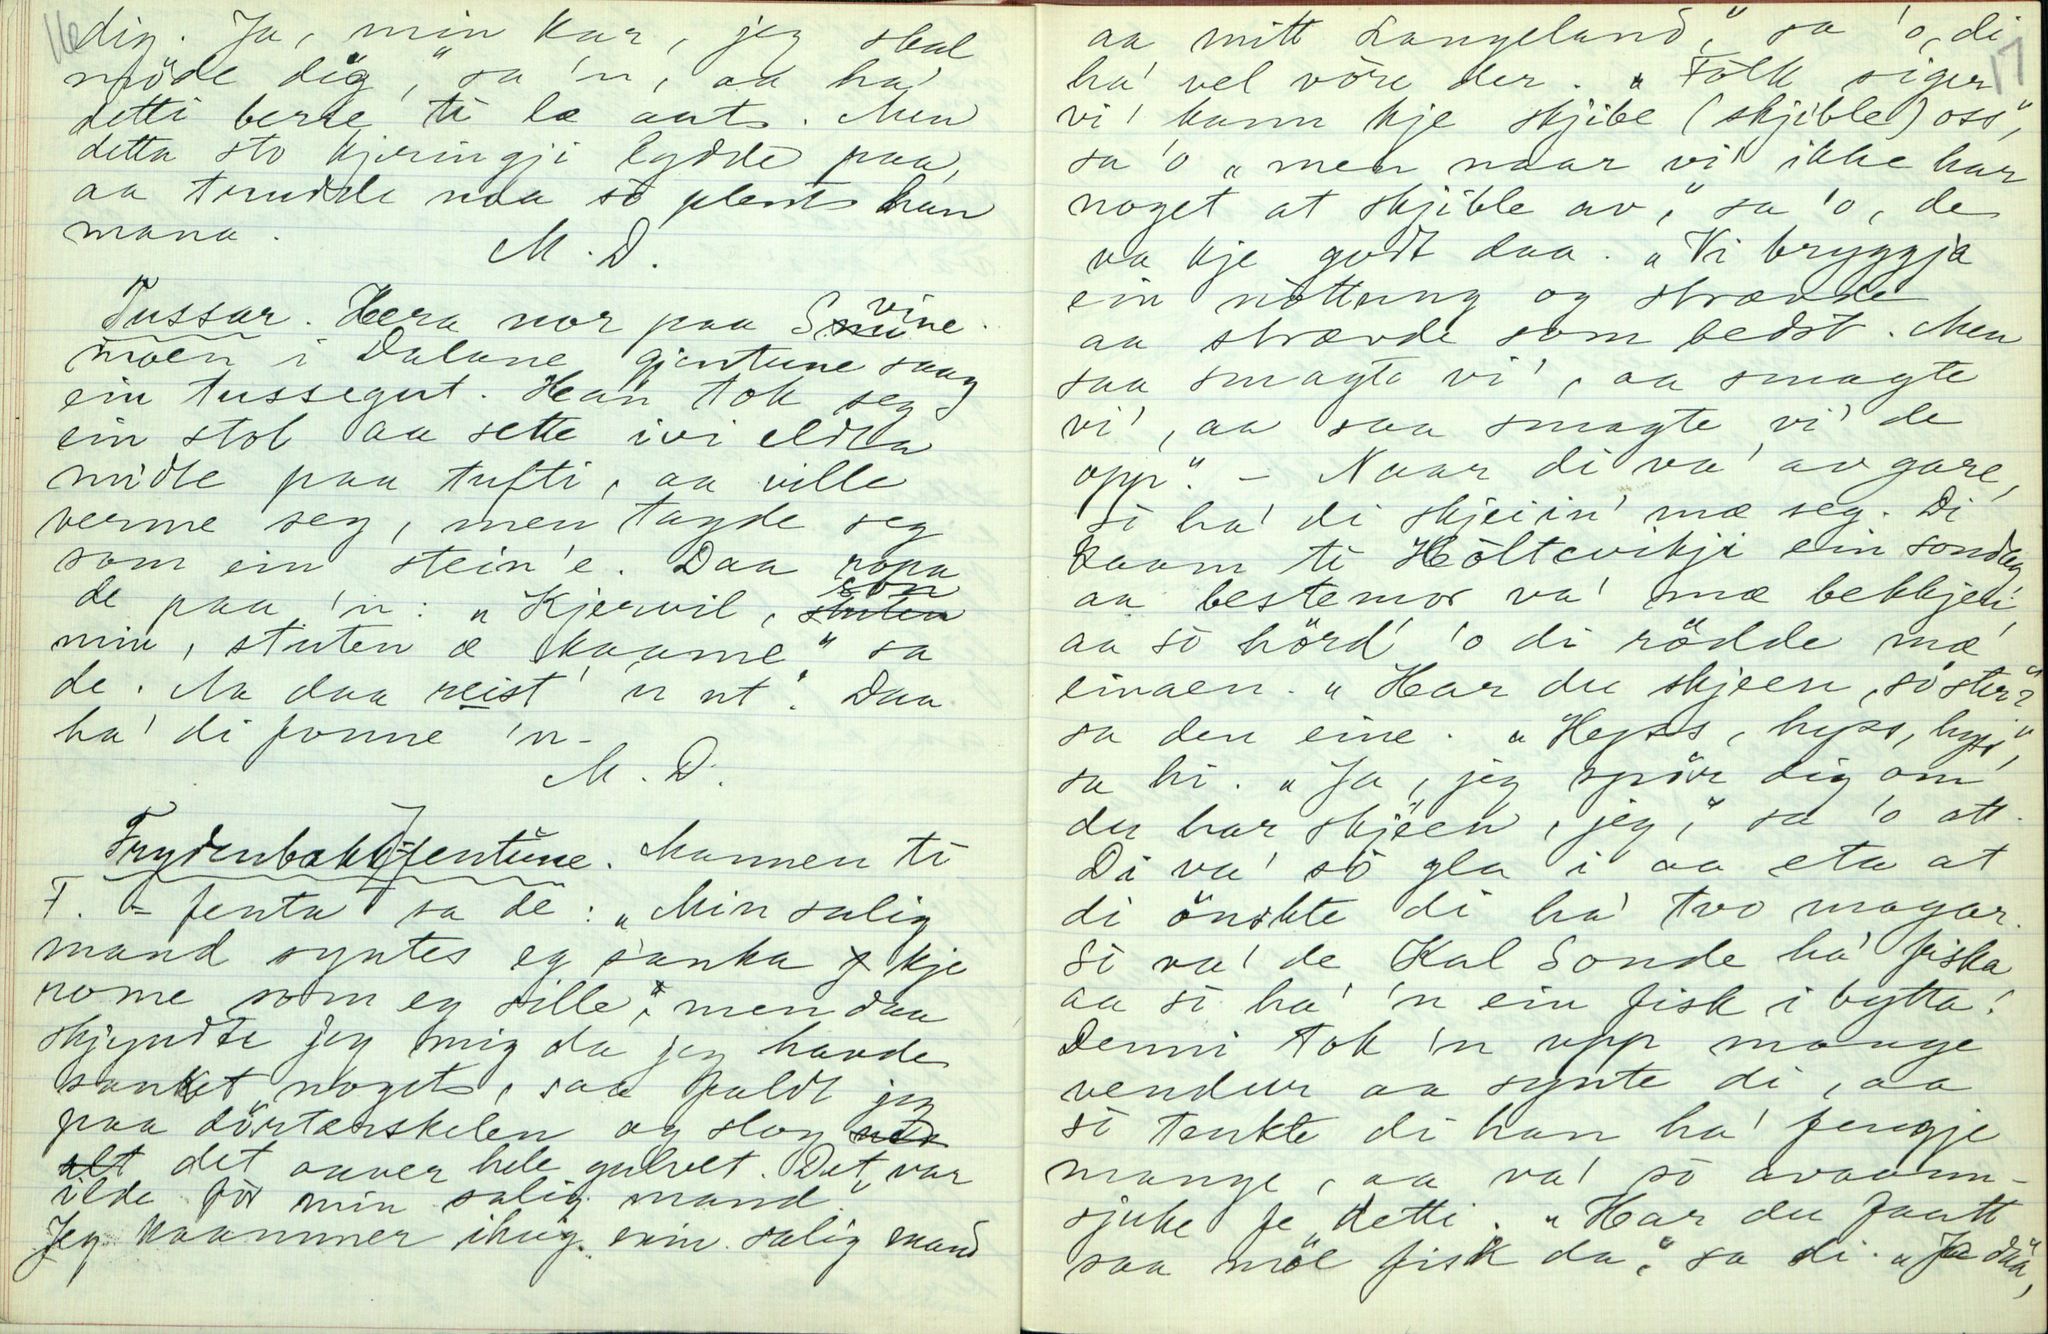 16
dig. Ja, min kar, jeg skal
møde dig," sa 'n, aa ha'
detti berre ti læ aat. Men
detta sto kjeringji lydde paa,
aa trudde naa so plent han
mana.
M. D.
Tussar. Hera nor paa Svine-
moen i Dalane gjentune saag
ein tussegut. Han tok seg
ein stol aa sette ivi elden
midle paa tufti, aa ville
verme seg, men tagde seg
som ein stein'e. Daa ropa
de paa 'n: "Kjervil, son
min, stuten æ kaame" sa
de. "Aa daa reist' 'n ut". Daa
ha' di fonne 'n-
M. D.
Frydenbakk-jentune. Mannen ti
F.- jenta sa de: "Min salig
mand syntes eg sanka kje
rome som eg sille," men daa
skjyndte jeg mig da jeg havde
sanket noget, saa faldt jeg
paa dörtærskelen og slog
det aaver hele gulvet. Det var
ilde för min salig mand."
Jeg kaammer ihug min salig mand
17
aa mitt Langeland," sa 'o, di
ha' vel vöre der. "Folk siger
vi' kann kje skjibe (skjible) oss",
sa 'o "men naar vi' ikke har
noget at skjible av," sa 'o, de
va kje godt daa. "Vi bryggja
ein nöttung og strævde
aa strævde som bedst. Men
saa smagte vi', aa smagte
vi', aa saa smagte vi' de
opp". - Naar di va' av gare,
so ha' di skjeiin' mæ seg. Di
kaam ti Höltevikji ein sondag
aa bestemor va' mæ bekkjen',
aa so hörd' 'o di rödde mæ
einaen. "Har du skjeen, söster?"
sa den eine. "Hyss, hyss, hyss",
sa hi. "Ja, jeg spör dig om
du har skjeen, jeg," sa 'o att.
Di va' so gla i aa eta at
di önskte di ha' tvo magar.
So va' de Kal Sonde ha' fiska
aa so ha' 'n ein fisk i bytta.
Denni tok 'n upp mange
vendur aa synte di, aa
so tenkte di han ha' fengje
mange, aa va' so avaaun-
sjuke fe detti. "Har du faatt
saa möe fisk da," sa di. "Ja daa",